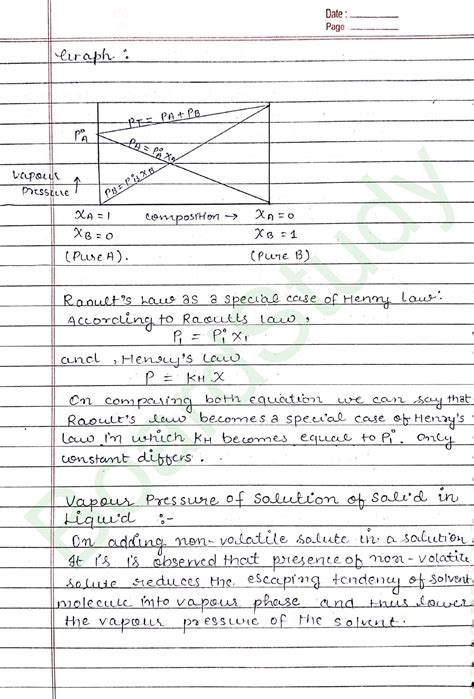 Date :
Page
Graph :
PT = PA + PB
P°A
PA = P°A XA
PB = P°B XB
Vapour
Pressure ↑
XA = 1 composition → XA = 0
XB = 0 XB = 1
(Pure A). (Pure B)
Raoult's Law as a special case of Henry law:
According to Raoults law,
P1 = P1° X1
and , Henry's Law
P = KH X
On comparing both equation we can say that
Raoult's law becomes a special case of Henry's
law in which KH becomes equal to P1°. Only
constant differs .
Vapour Pressure of Solution of Solid in
Liquid :-
On adding non-volatile solute in a solution
It is is observed that presence of non-volatile
solute reduces the escaping tendency of solvent
molecule into vapour phase and thus lower
the vapour pressure of the solvent.
BoardStudy